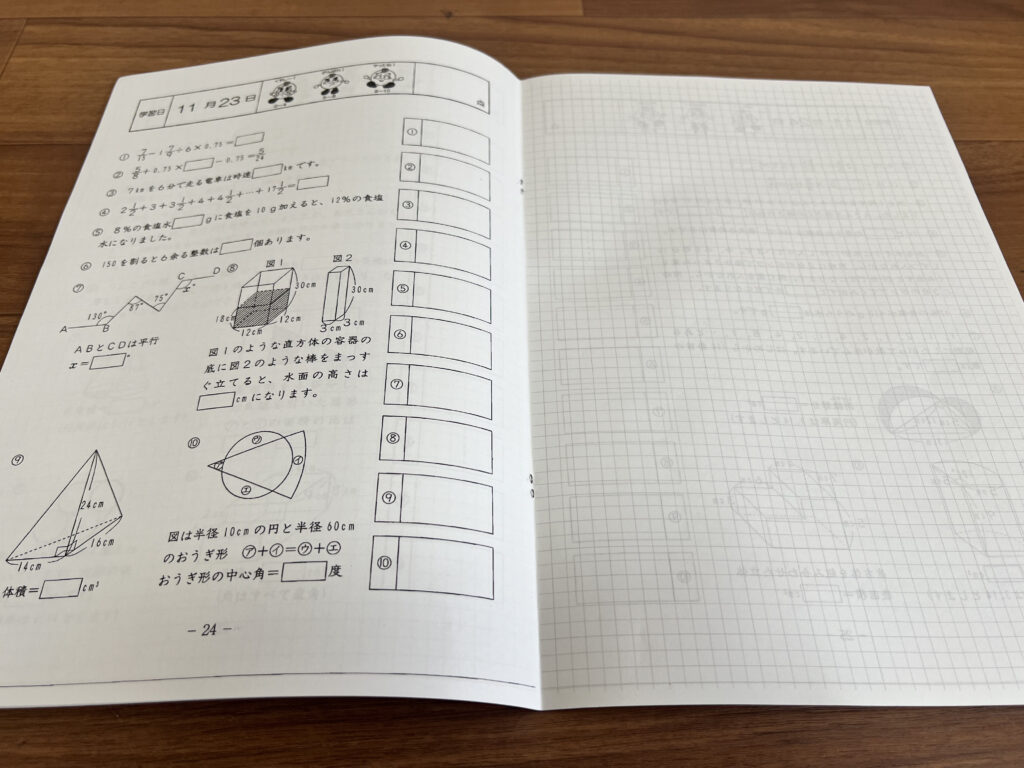 学習日 11月23日
① 7/15−1 7/9÷6×0.75=
② 5/8+0.75×□−0.75=5/24
③ 7kmを6分で走る電車は時速□kmです。
④ 2 1/2+3+3 1/2+4+4 1/2+…+17 1/2=□
⑤ 8%の食塩水□gに食塩を10g加えると、12%の食塩
水になりました。
⑥ 150を割ると6余る整数は□個あります。
⑦
A
130°
B
87°
75°
C
D
x
ABとCDは平行
x=□°
⑧
図1
30cm
18cm
12cm
12cm
図2
30cm
3cm
3cm
図1のような直方体の容器の
底に図2のような棒をまっす
ぐ立てると、水面の高さは
□cmになります。
⑨
24cm
16cm
14cm
体積=□cm³
⑩
㋒
㋑
㋓
図は半径10cmの円と半径60cm
のおうぎ形 ㋐+㋑=㋒+㋓
おうぎ形の中心角=□度
①
②
③
④
⑤
⑥
⑦
⑧
⑨
⑩
− 24 −